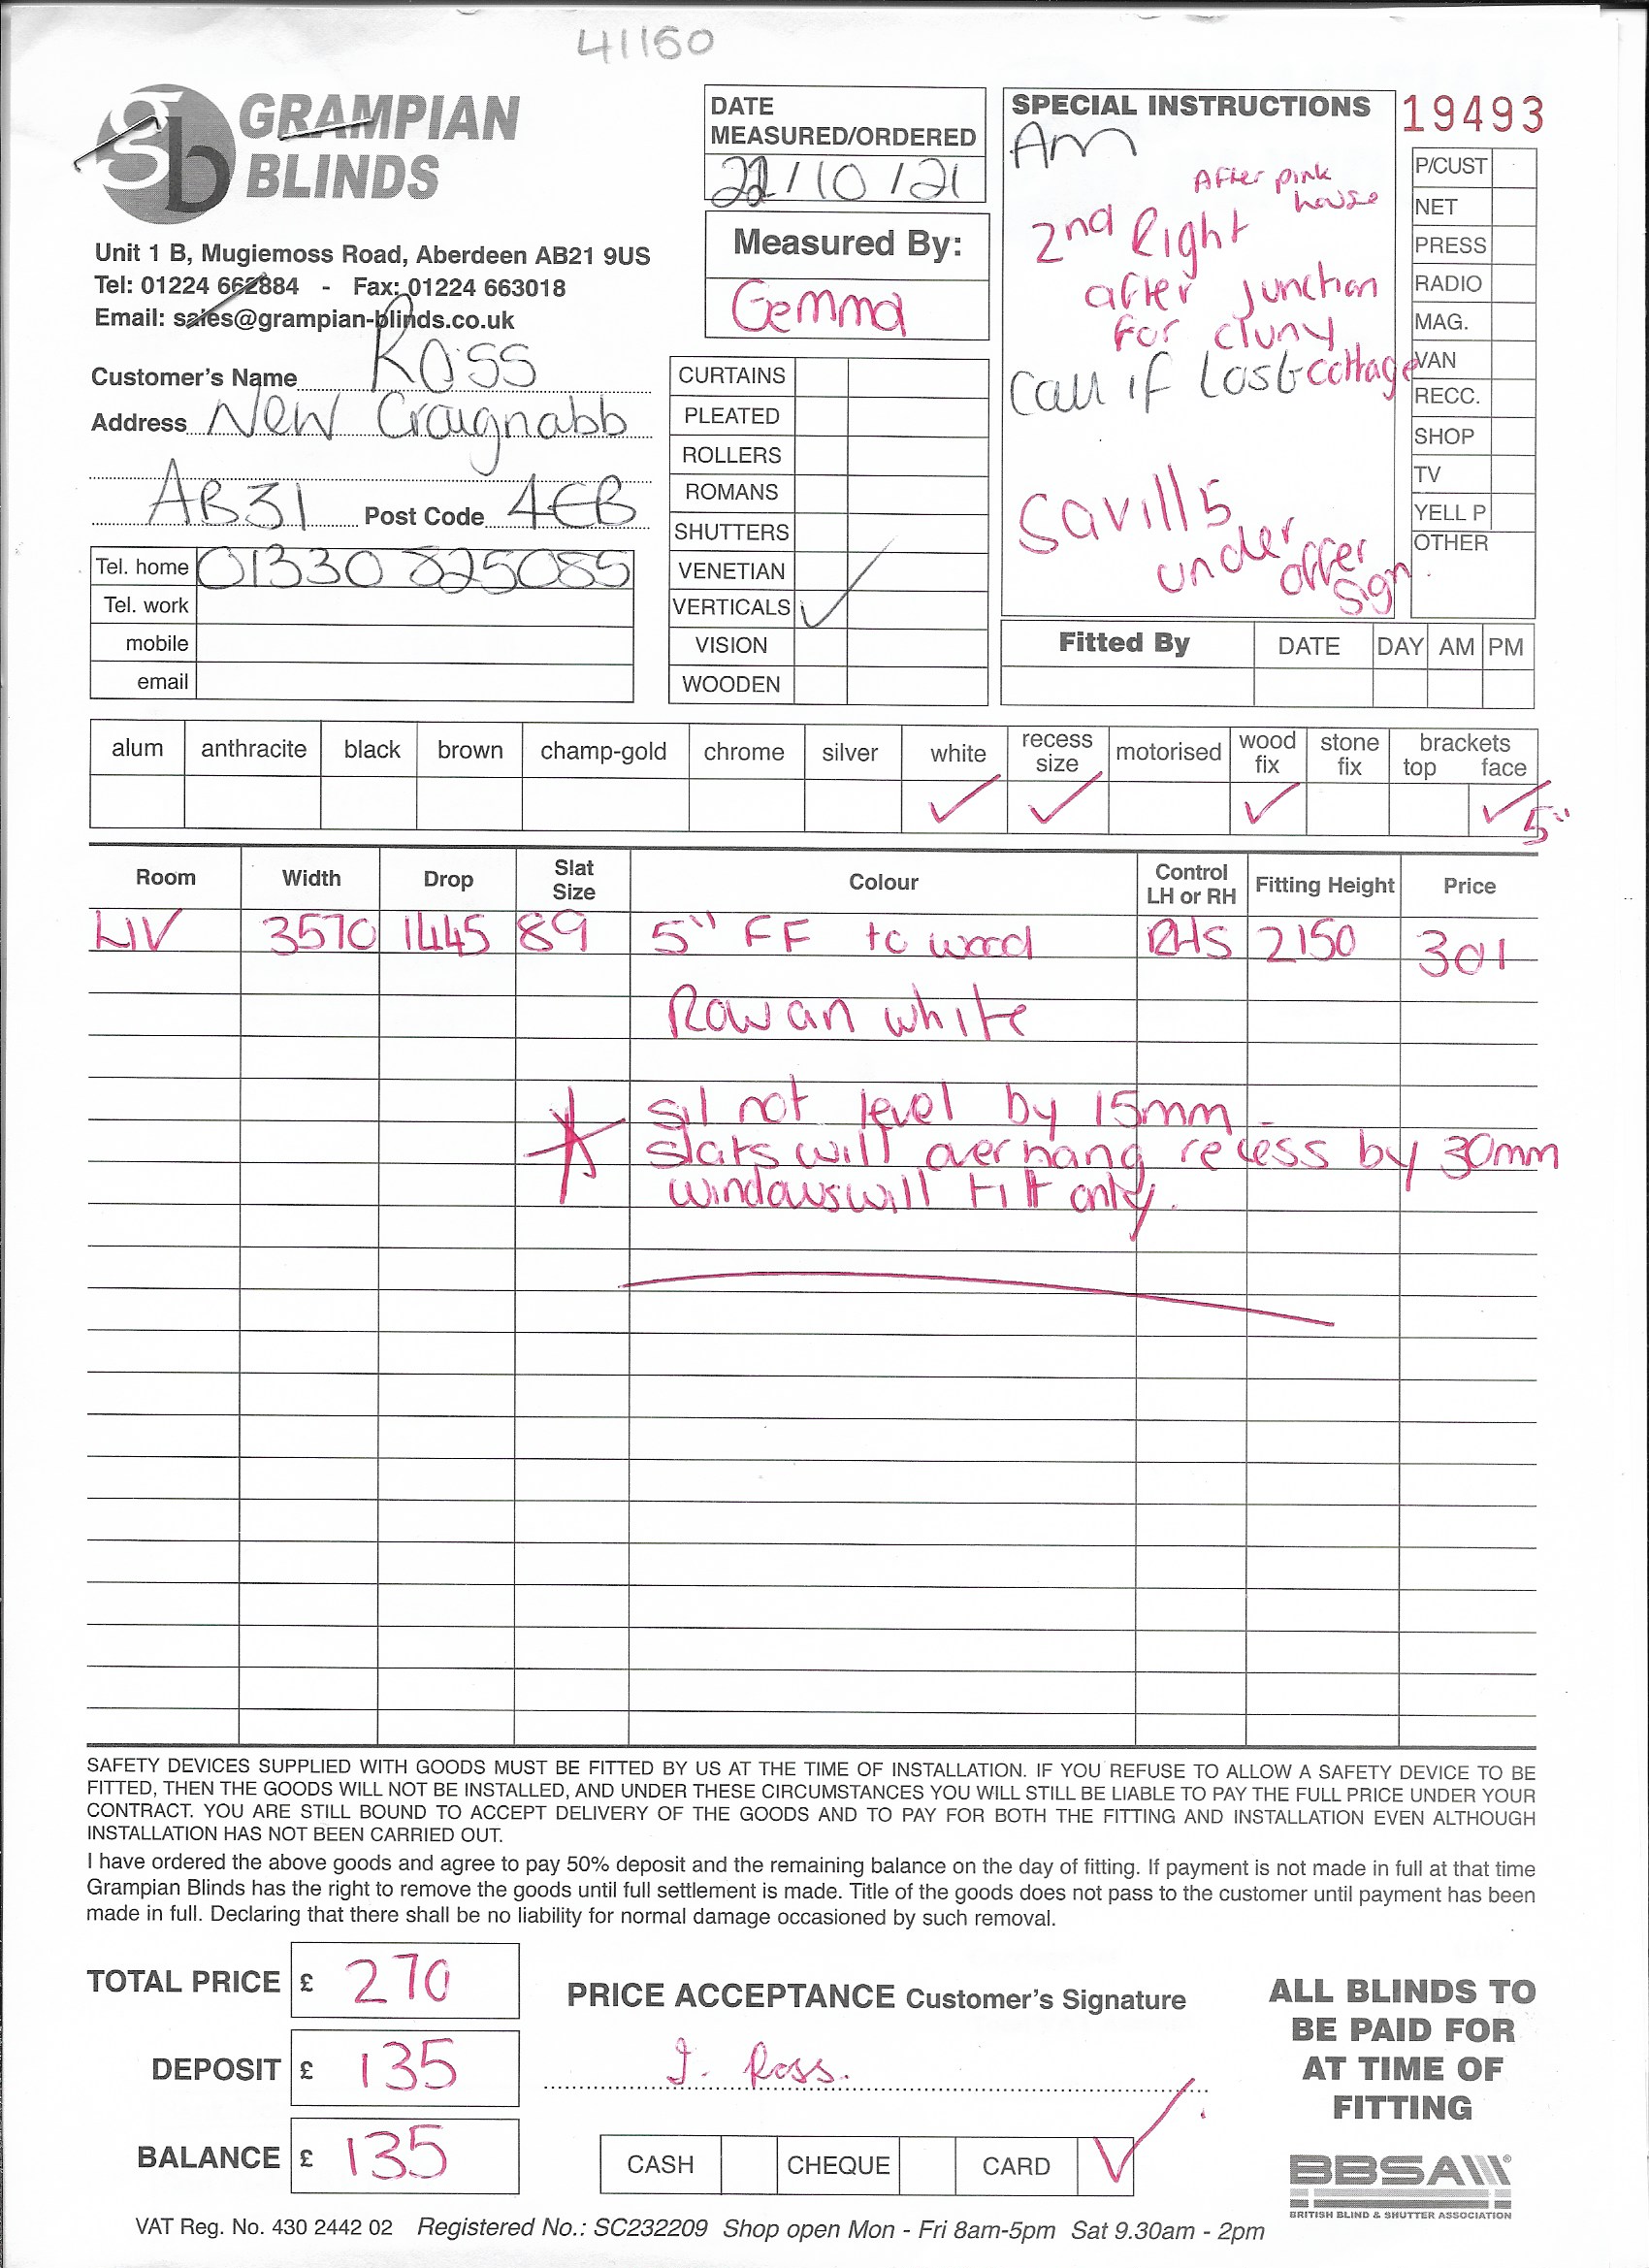 41150
GRAMPIAN
BLINDS
Unit 1 B, Mugiemoss Road, Aberdeen AB21 9US
Tel: 01224 662884 - Fax: 01224 663018
Email: sales@grampian-blinds.co.uk
Customer's Name Ross
Address New Craignabb
AB31 Post Code 4EB
Tel. home 01330 825085
Tel. work
mobile
email
DATE
MEASURED/ORDERED
22/10/21
Measured By:
Gemma
CURTAINS
PLEATED
ROLLERS
ROMANS
SHUTTERS
VENETIAN
VERTICALS ✓
VISION
WOODEN
SPECIAL INSTRUCTIONS
Am
After pink
house
2nd Right
after junction
for cluny
Call if lost cottage
Savills
under
offer
sign
19493
P/CUST
NET
PRESS
RADIO
MAG.
VAN
RECC.
SHOP
TV
YELL P
OTHER
Fitted By DATE DAY AM PM
alum anthracite black brown champ-gold chrome silver white recess size motorised wood fix stone fix brackets top face
✓ ✓ ✓ ✓ 5"
Room Width Drop Slat Size Colour Control LH or RH Fitting Height Price
LIV 3570 1445 89 5" FF to wood RHS 2150 301
Rowan white
Sil not level by 15mm
slats will overhang recess by 30mm
windows will tilt only.
SAFETY DEVICES SUPPLIED WITH GOODS MUST BE FITTED BY US AT THE TIME OF INSTALLATION. IF YOU REFUSE TO ALLOW A SAFETY DEVICE TO BE
FITTED, THEN THE GOODS WILL NOT BE INSTALLED, AND UNDER THESE CIRCUMSTANCES YOU WILL STILL BE LIABLE TO PAY THE FULL PRICE UNDER YOUR
CONTRACT. YOU ARE STILL BOUND TO ACCEPT DELIVERY OF THE GOODS AND TO PAY FOR BOTH THE FITTING AND INSTALLATION EVEN ALTHOUGH
INSTALLATION HAS NOT BEEN CARRIED OUT.
I have ordered the above goods and agree to pay 50% deposit and the remaining balance on the day of fitting. If payment is not made in full at that time
Grampian Blinds has the right to remove the goods until full settlement is made. Title of the goods does not pass to the customer until payment has been
made in full. Declaring that there shall be no liability for normal damage occasioned by such removal.
TOTAL PRICE £ 270
DEPOSIT £ 135
BALANCE £ 135
PRICE ACCEPTANCE Customer's Signature
J. Ross.
CASH CHEQUE CARD ✓
ALL BLINDS TO
BE PAID FOR
AT TIME OF
FITTING
BBSA
BRITISH BLIND & SHUTTER ASSOCIATION
VAT Reg. No. 430 2442 02 Registered No.: SC232209 Shop open Mon - Fri 8am-5pm Sat 9.30am - 2pm